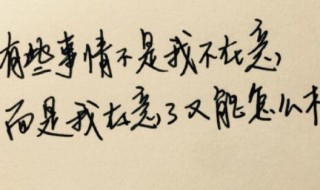 有些事情不是我不在意,
而是我在意了又能怎么